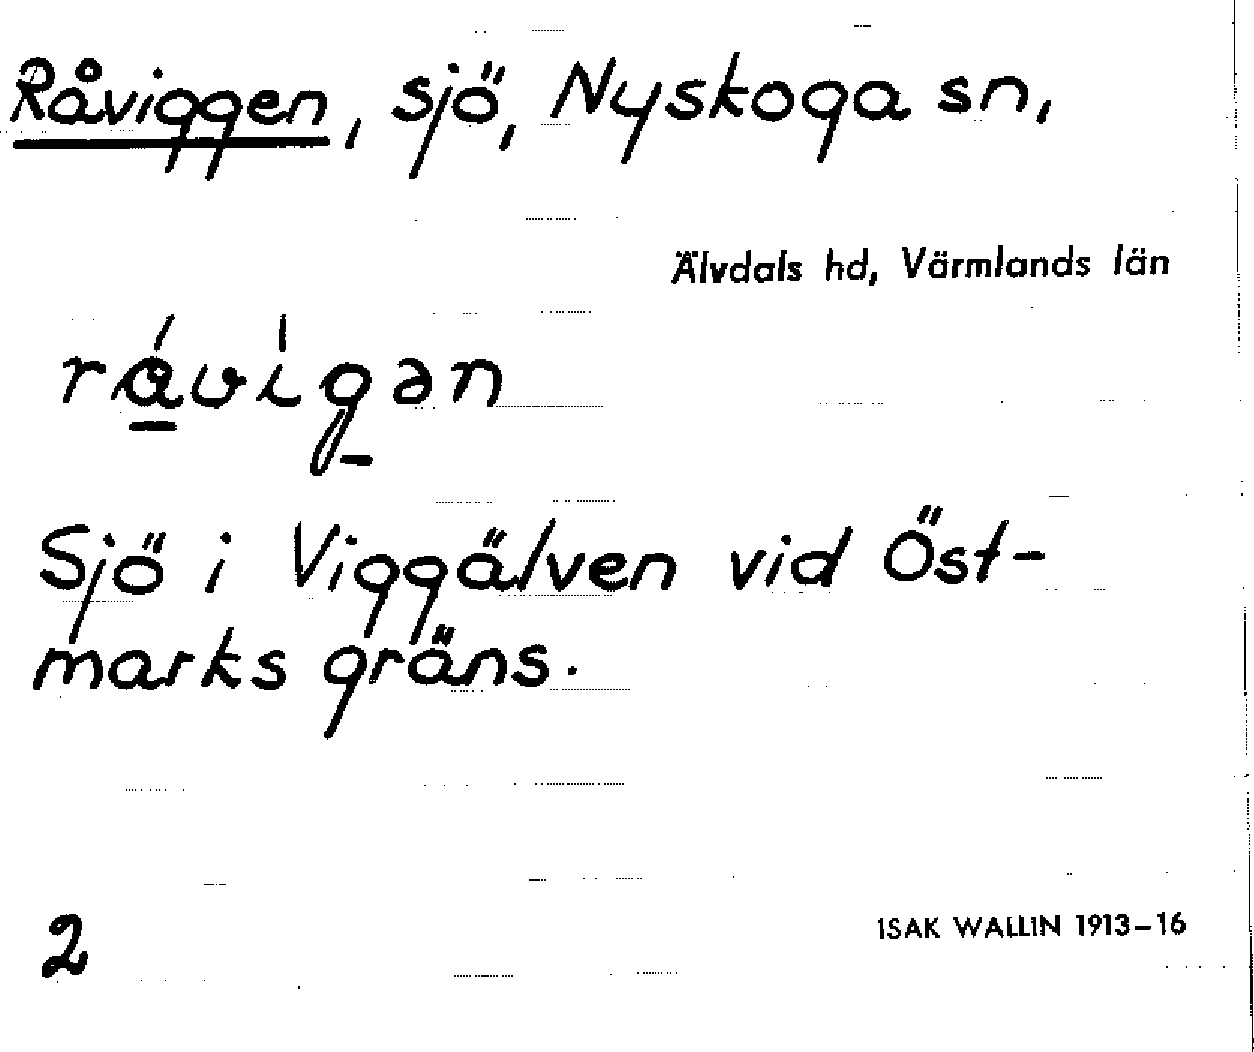 Råviggen, sjö, Nyskoga sn,
Älvdals hd, Värmlands län
rá̱vi̍g̱ən
Sjö i Viggälven vid Öst-
marks gräns.
2
ISAK WALLIN 1913–16